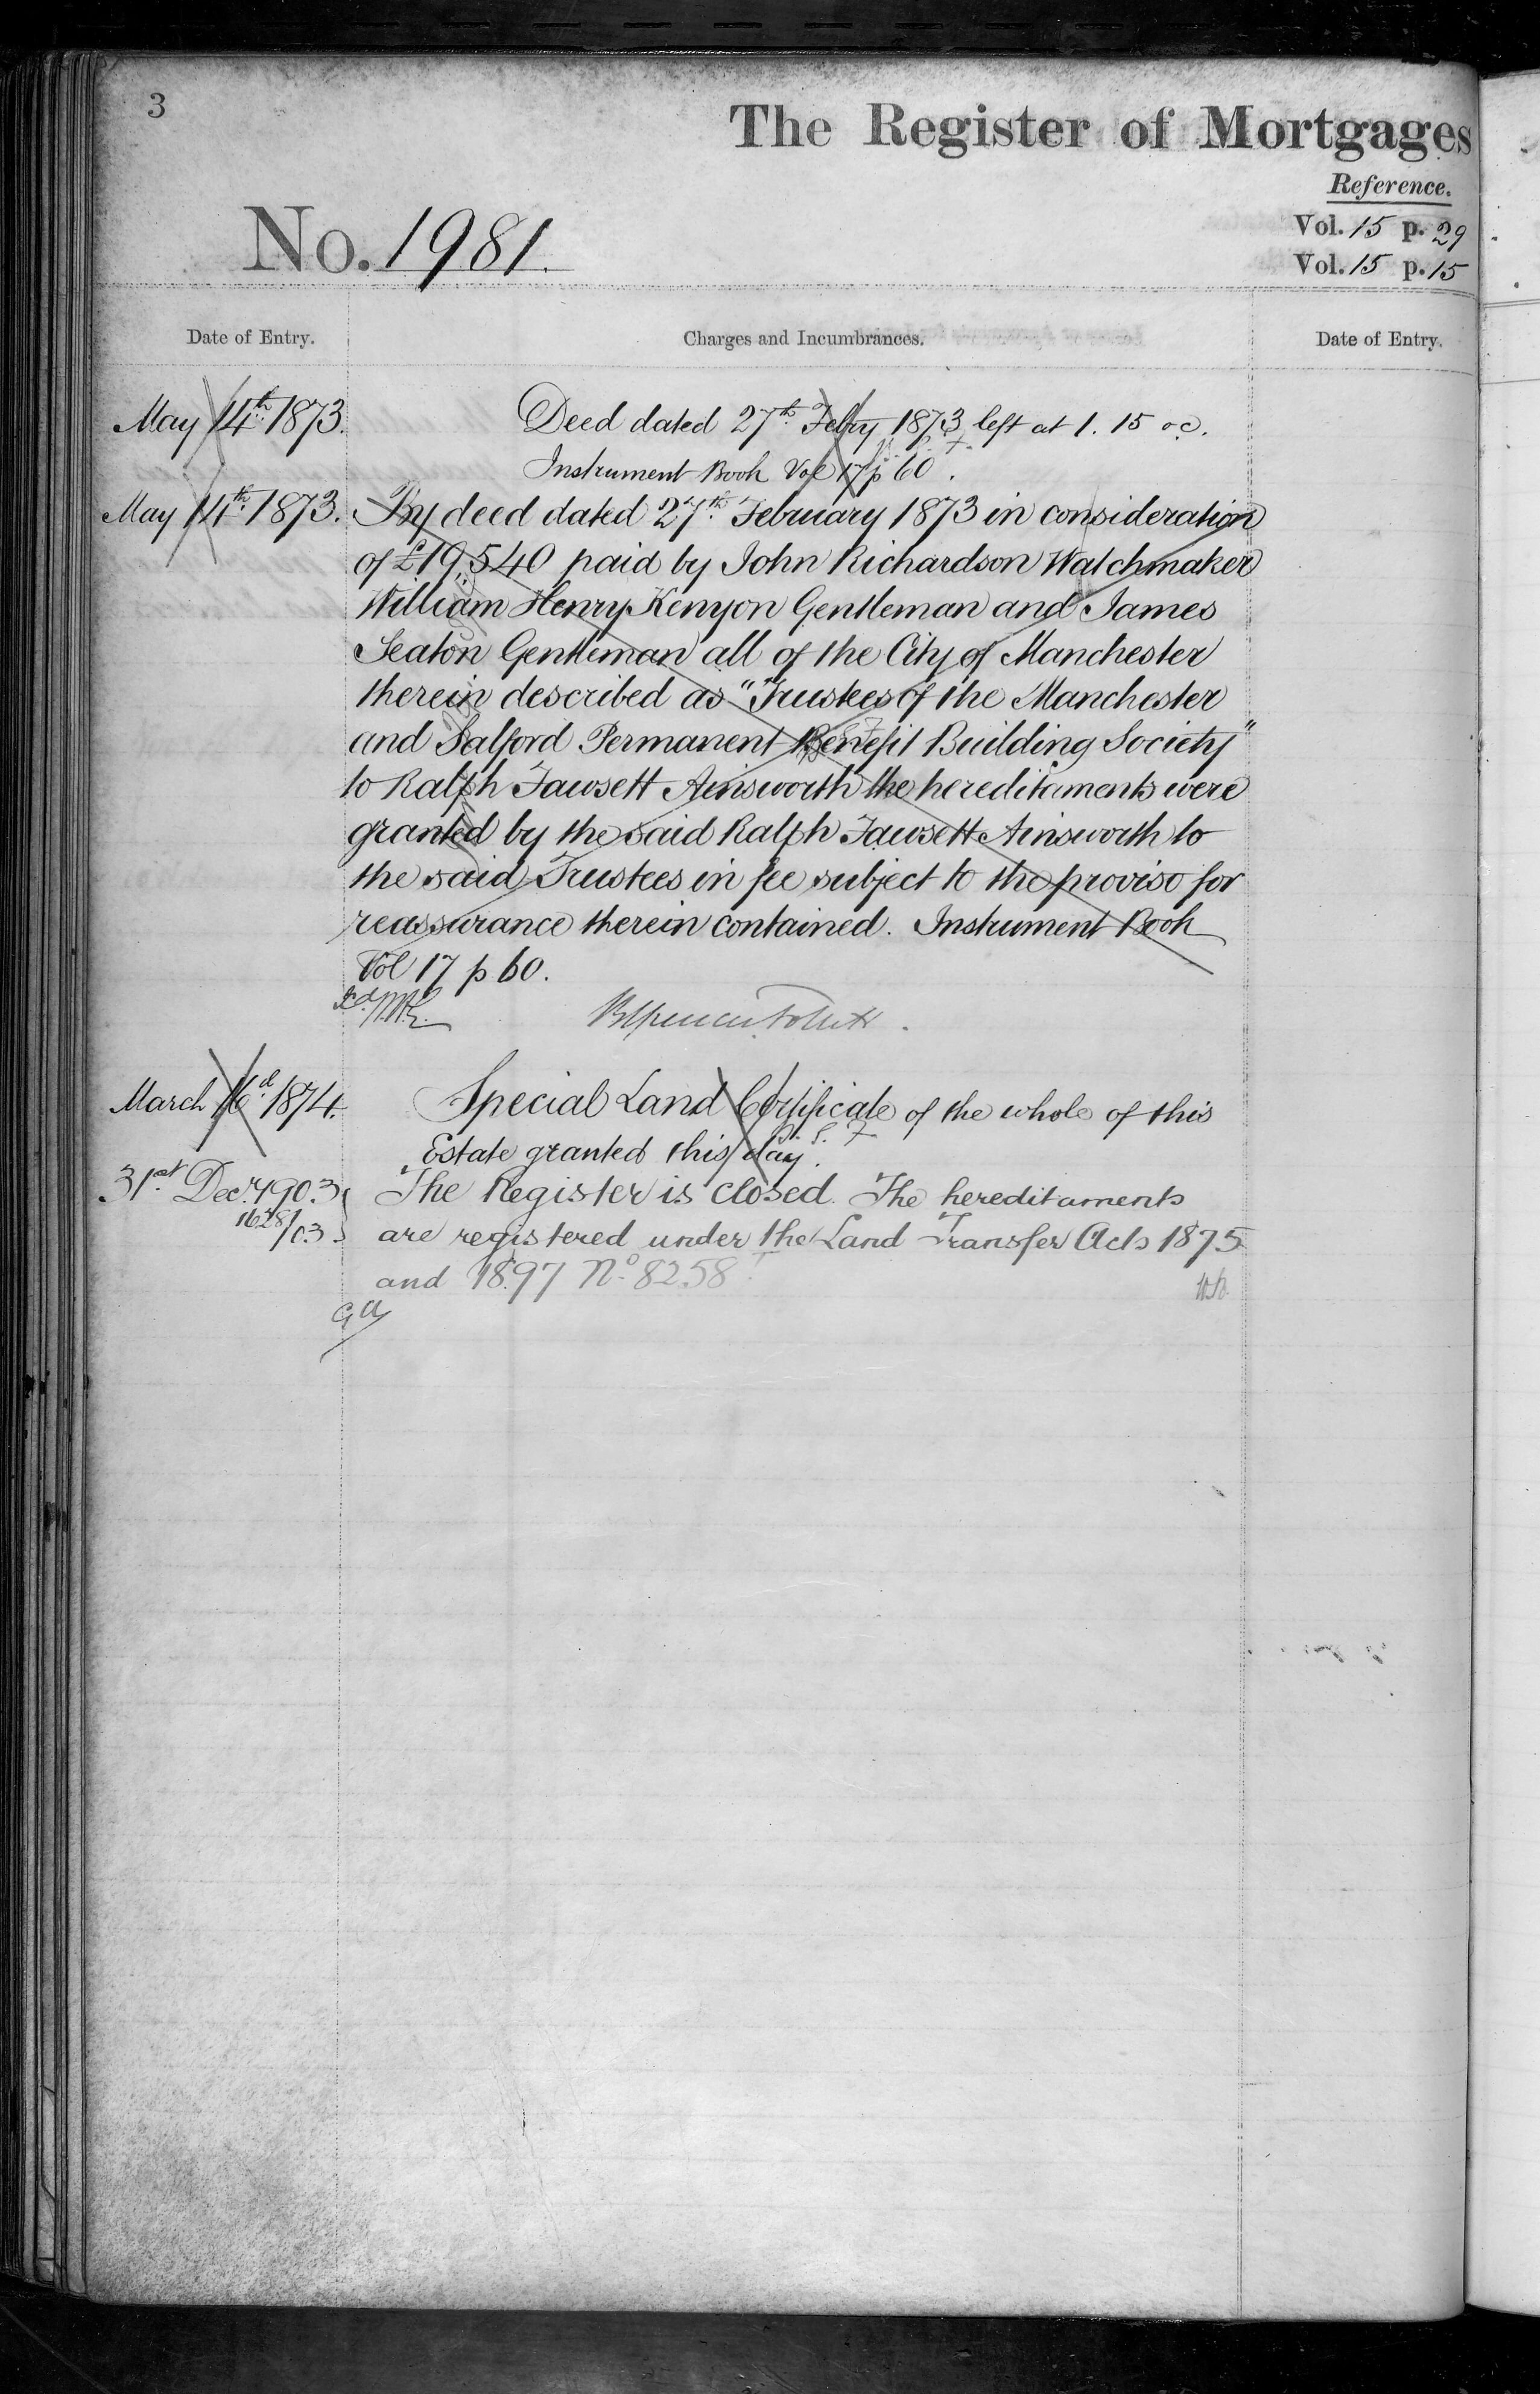 3
The Register of Mortgages
Reference.
No. 1981.
Vol. 15 p. 29
Vol. 15 p. 15
Date of Entry. Charges and Incumbrances. Date of Entry.
May 14th 1873. Deed dated 27th Febry 1873 left at 1. 15 oc.
Instrument Book Vol 17 p 60.
May 14th 1873. By deed dated 27th February 1873 in consideration
of £19,540 paid by John Richardson Watchmaker
William Henry Kenyon Gentleman and James
Seaton Gentleman all of the City of Manchester
therein described as "Trustees of the Manchester
and Salford Permanent Benefit Building Society"
to Ralph Fawsett Ainsworth the hereditaments were
granted by the said Ralph Fawsett Ainsworth to
the said Trustees in fee subject to the proviso for
reassurance therein contained. Instrument Book
Vol 17 p 60.
March 1874. Special Land Certificate of the whole of this
Estate granted this day.
31st Decr 1903 The Register is closed. The hereditaments
1628/03 are registered under the Land Transfer Acts 1875
and 1897 No. 8258.